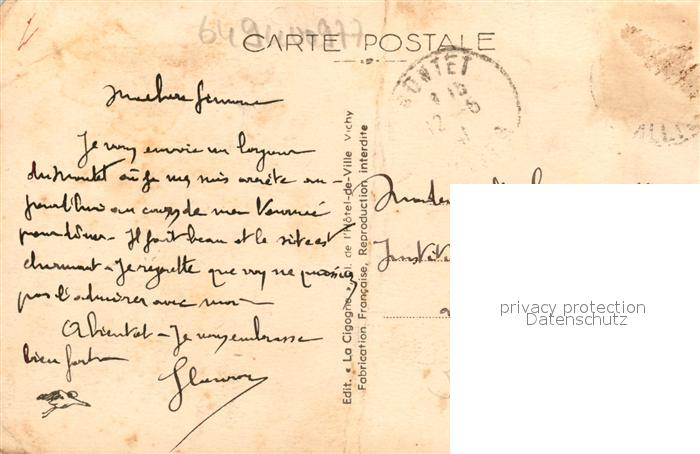 CARTE POSTALE
Ma chère Simone
Je vous envoie un bonjour
du Montet où je me suis arrêté au-
jourd'hui au cours de ma tournée
pour dîner. Il fait beau et le site est
charmant. Je regrette que vous ne puissiez
pas l'admirer avec moi
A bientôt. Je vous embrasse
bien fort
Edit. « La Cigogne », de l'Hôtel-de-Ville Vichy
Fabrication Française, Reproduction interdite
MONTET
12
ALLI
privacy protection
Datenschutz